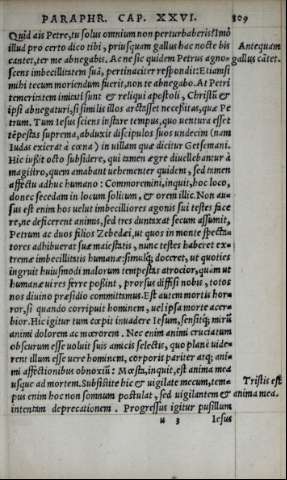 PARAPHR. CAP. XXVI. 809
Quid ais Petre, tu solus omnium non perturbaberis? Imò
illud pro certo dico tibi, priusquam gallus hac nocte bis
cantet, ter me abnegabis. Ac ne sic quidem Petrus agno=
scens imbecillitatem suā, pertinaciter respondit: Etiamsi
mihi tecum moriendum fuerit, non te abnegabo. At Petri
temeritatem imitati sunt & reliqui apostoli, Christū &
ipsi abnegaturi, si similis illos arctasset necessitas, quæ Pe
trum. Tum Iesus sciens instare tempus, quo uentura esset
tēpestas suprema, abduxit discipulos suos undecim (nam
Iudas exierat à cœna) in uillam quæ dicitur Getsemani.
Hic iussit octo subsidere, qui tamen ægre diuellebantur à
magistro, quem amabant uehementer quidem, sed tamen
affectu adhuc humano: Commoremini, inquit, hoc loco,
donec secedam in locum solium, & orem illic. Non au=
sus est enim hos uelut imbecilliores agonis sui testes face
re, ne deficerent animis, sed tres duntaxat secum assumit,
Petrum ac duos filios Zebedæi, ut quos in monte specta=
tores adhibuerat suæ maiestatis, nunc testes haberet ex=
tremæ imbecillitatis humanæ: simulq́; doceret, ut quoties
ingruit huiusmodi malorum tempestas atrocior, quàm ut
humanæ uires ferre possint, prorsus diffisi nobis, totos
nos diuino præsidio committamus. Est autem mortis hor=
ror, si quando corripuit hominem, uel ipsa morte acer=
bior. Hic igitur tum cœpit inuadere Iesum, sensitq́; mirū
animi dolorem ac mœrorem. Nec enim animi cruciatum
obscurum esse uoluit suis amicis selectis, quo plani uide=
rent illum esse uere hominem, corporis pariter atq́; ani=
mi affectionibus obnoxiū: Mœsta, inquit, est anima mea
usque ad mortem. Subsistite hic & uigilate mecum, tem=
pus enim hoc non somnum postulat, sed uigilantem &
intentam deprecationem. Progressus igitur pusillum
u 3 Iesus
Antequam
gallus cātet.
Tristis est
anima mea.